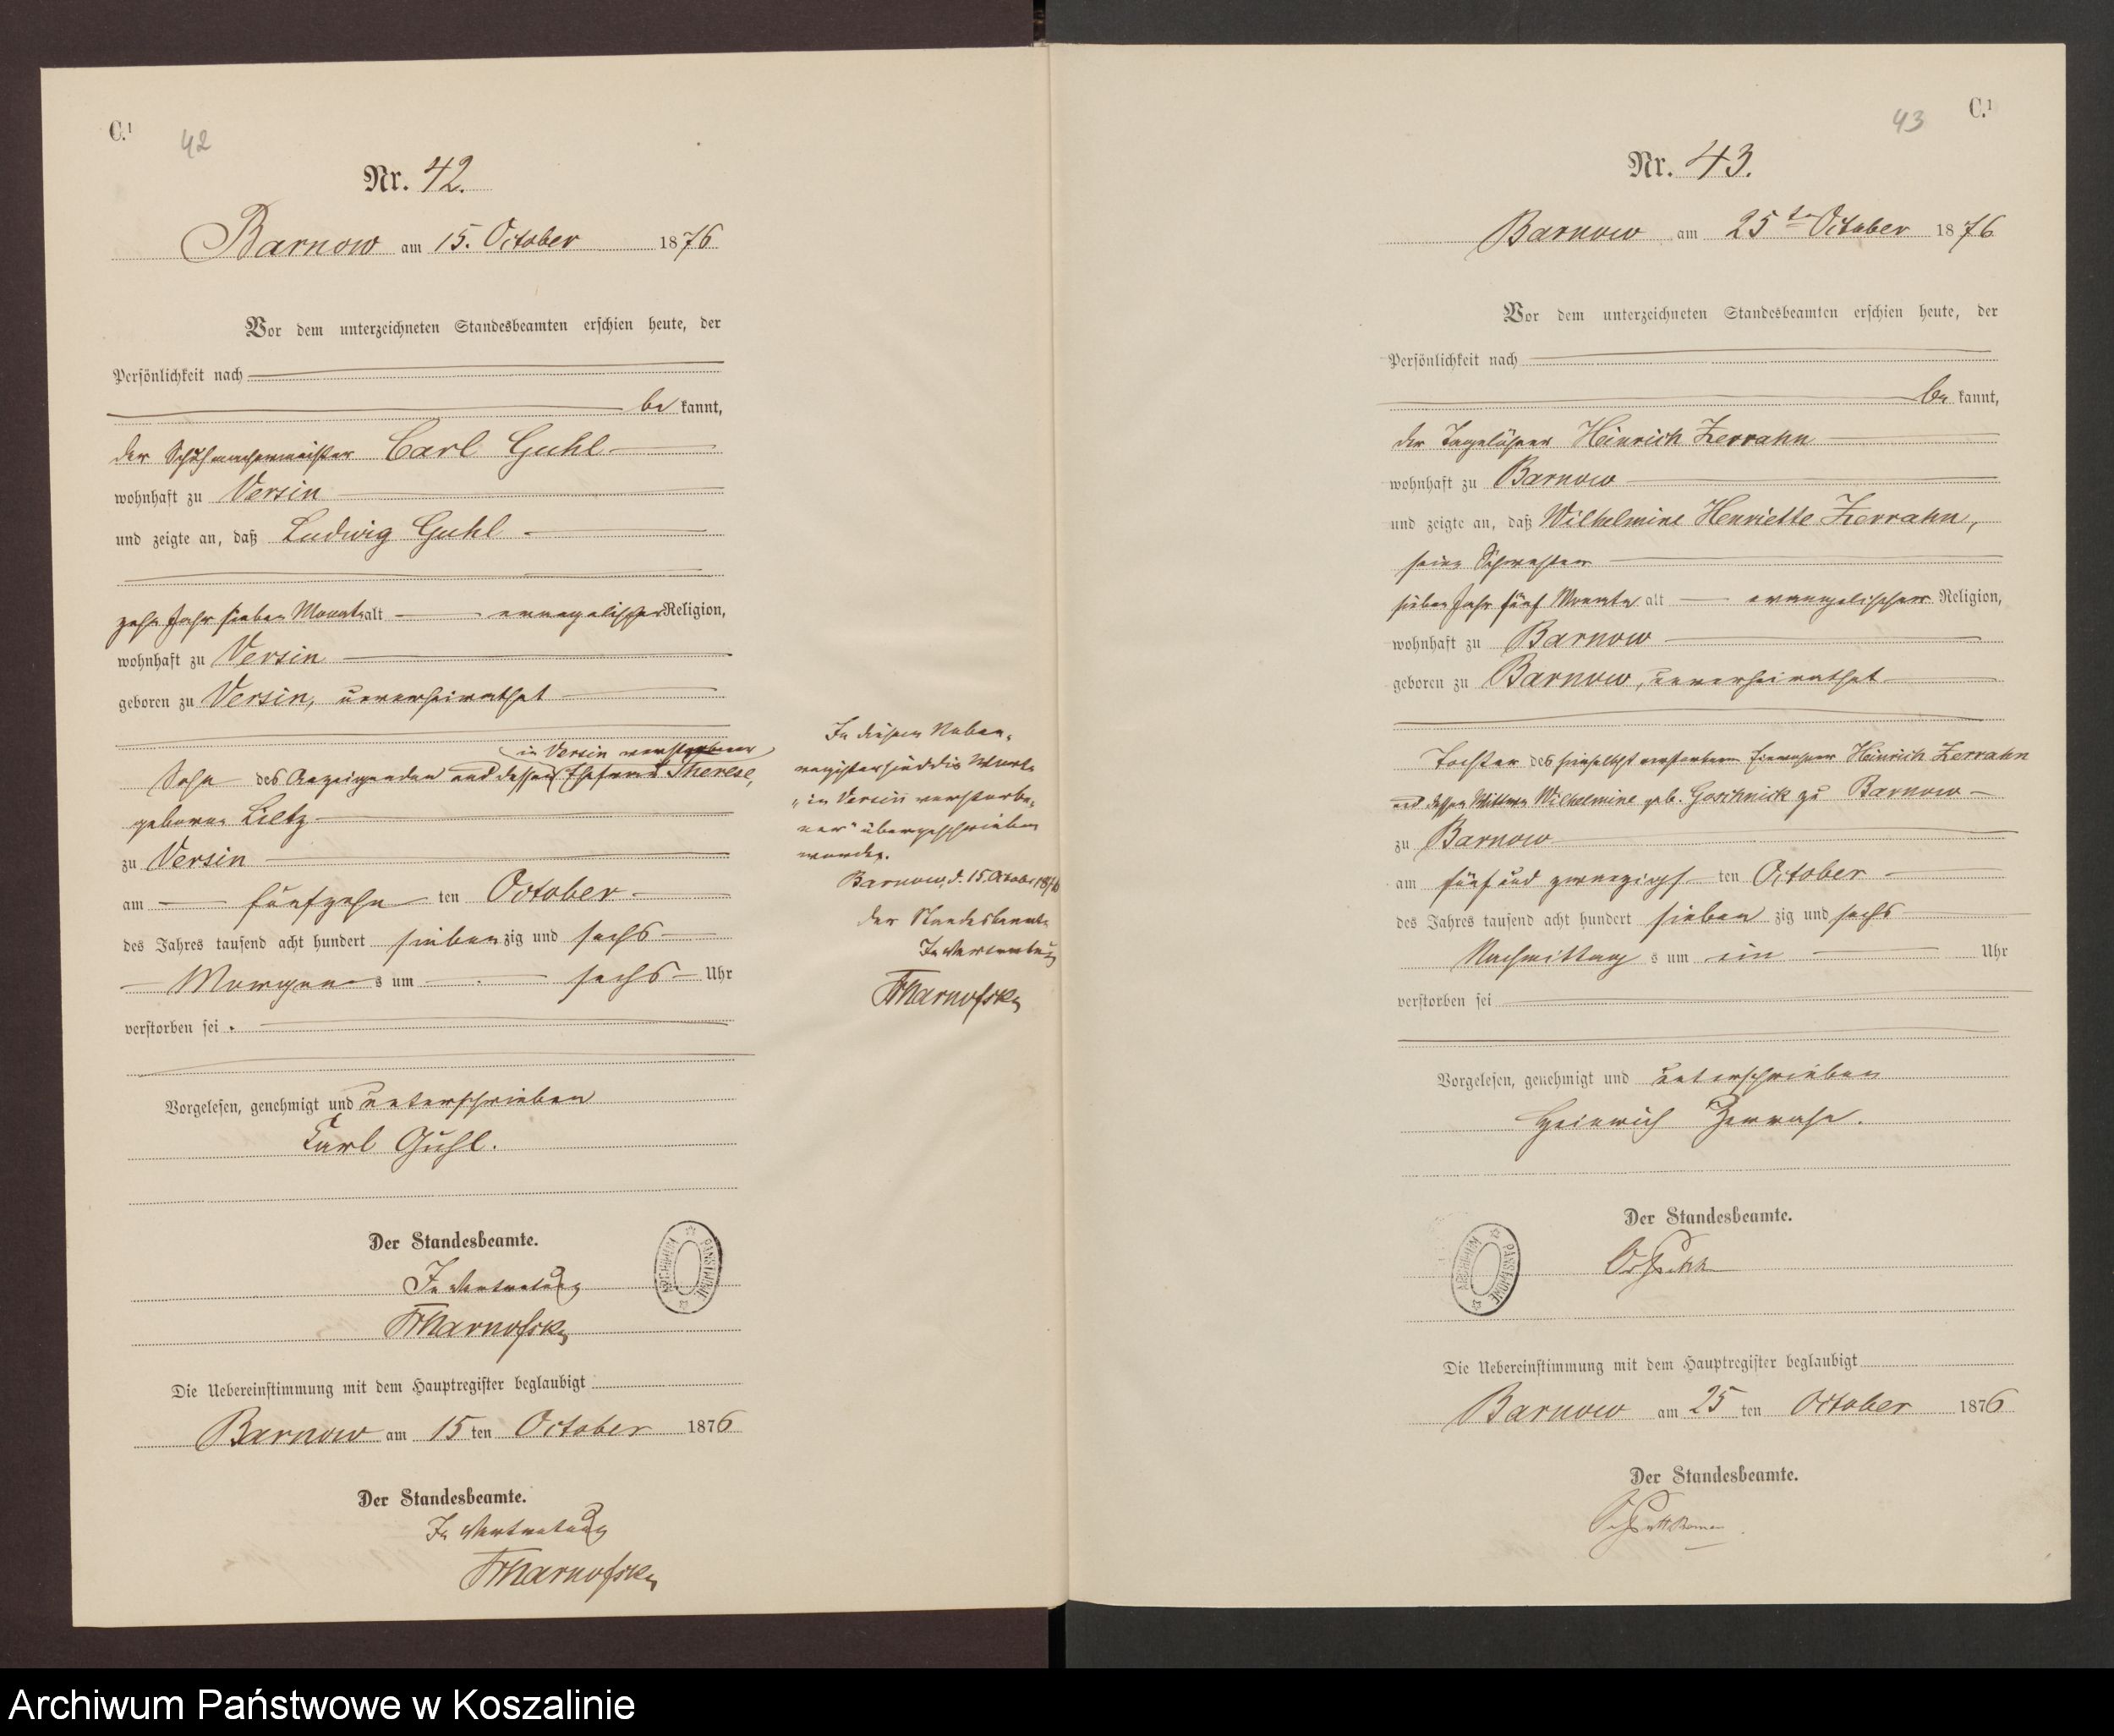 C.1
42
Nr. 42.
Barnow am 15. October 1876
Vor dem unterzeichneten Standesbeamten erschien heute, der
Persönlichkeit nach
be kannt,
der Schuhmachermeister Carl Guhl
wohnhaft zu Versin
und zeigte an, daß Ludwig Guhl
zehn Jahr sieben Monate alt evangelischer Religion,
wohnhaft zu Versin
geboren zu Versin, unverheirathet
in Versin verstorbenen
Sohn des Anzeigenden und dessen Ehefrau Therese,
geborne Lietz
zu Versin
am fünfzehn ten October
des Jahres tausend acht hundert sieben zig und sechs
Morgens s um sechs Uhr
verstorben sei.
Vorgelesen, genehmigt und unterschrieben
Carl Guhl.
Der Standesbeamte.
In Vertretung
Die Uebereinstimmung mit dem Hauptregister beglaubigt
Barnow am 15 ten October 1876
Der Standesbeamte.
In Vertretung
In diesem Neben-
register sind die Worte
"in Versin verstorbe-
ner" übergeschrieben
worden.
Barnow, d. 15. October 1876
Der Standesbeamte
In Vertretung
43
C.1
Nr. 43.
Barnow am 25ten October 1876
Vor dem unterzeichneten Standesbeamten erschien heute, der
Persönlichkeit nach
be kannt,
der Tagelöhner Heinrich Zerrahn
wohnhaft zu Barnow
und zeigte an, daß Wilhelmine Henriette Zerrahn,
seine Schwester
sieben Jahr fünf Monate alt evangelischer Religion,
wohnhaft zu Barnow
geboren zu Barnow, unverheirathet
Tochter des hieselbst verstorbenen Einwohner Heinrich Zerrahn
und dessen Wittwe Wilhelmine geb. Goschnick zu Barnow
zu Barnow
am fünf und zwanzigsten ten October
des Jahres tausend acht hundert sieben zig und sechs
Nachmittag s um ein Uhr
verstorben sei
Vorgelesen, genehmigt und unterschrieben
Heinrich Zerrahn.
Der Standesbeamte.
Die Uebereinstimmung mit dem Hauptregister beglaubigt
Barnow am 25 ten October 1876
Der Standesbeamte.
ARCHIWUM PAŃSTWOWE
ARCHIWUM PAŃSTWOWE
Archiwum Państwowe w Koszalinie